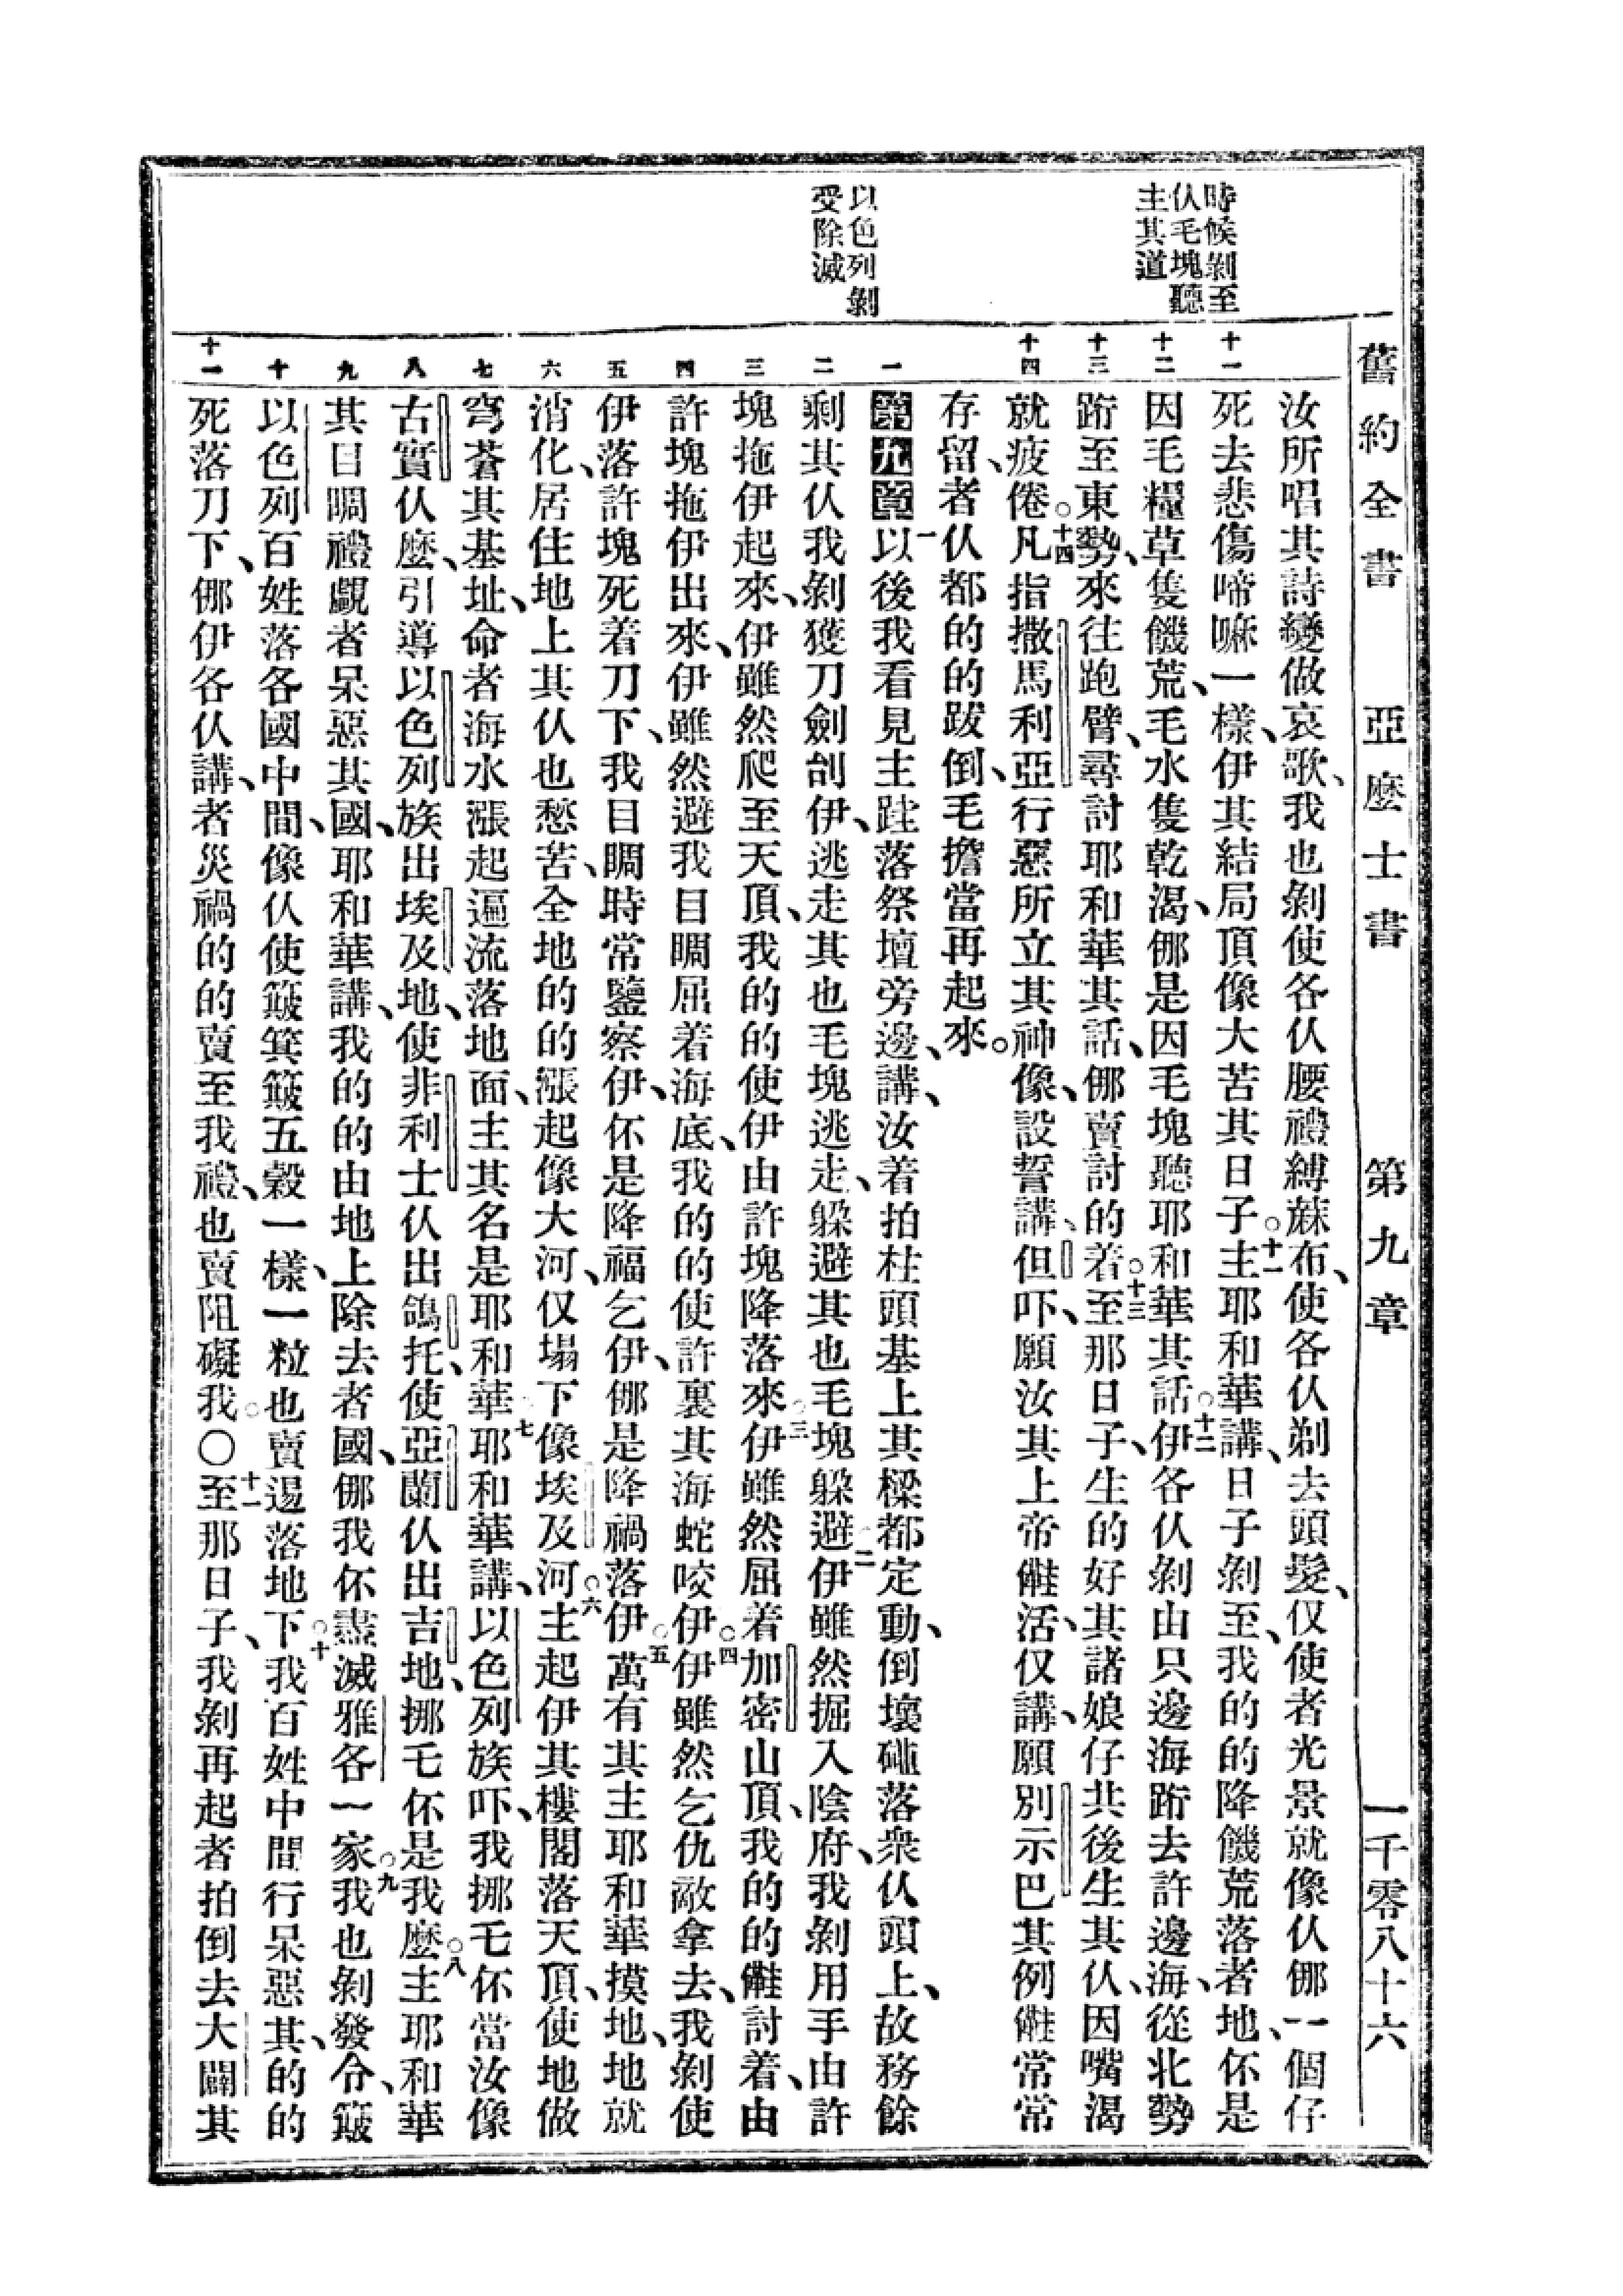 舊約全書 亞麼士書 第九章 一千零八十六
時候剝至
仈毛塊聽
主其道
以色列剝
受除滅
十一
十二
十三
十四
一
二
三
四
五
六
七
八
九
十
十一
汝所唱其詩變做哀歌、我也剝使各仈腰禮縛蔴布、使各仈剃去頭髮、仅使者光景就像仈倻一個仔
死去悲傷啼嘛一樣、伊其結局頂像大苦其日子。十一主耶和華講、日子剝至、我的的降饑荒落者地、伓是
因毛糧草隻饑荒、毛水隻乾渴、倻是因毛塊聽耶和華其話。十二伊各仈剝由只邊海跡去許邊海、從北勢
跡至東勢、來往跑臂、尋討耶和華其話、倻賣討的着。十三至那日子、生的好其諸娘仔共後生其仈、因嘴渴
就疲倦。十四凡指撒馬利亞行惡所立其神像、設誓講、但吓、願汝其上帝活、仅講、願別示巴其例常常
存留、者仈都的的跋倒、毛擔當再起來。
第九章 一以後我看見主跬落祭壇旁邊、講、汝着拍柱頭基上其樑都定動、倒壞落衆仈頭上、故務餘
剩其仈我剝獲刀劍刣伊、逃走其也毛塊逃走、躲避其也毛塊躲避。二伊雖然掘入陰府、我剝用手由許
塊拖伊起來、伊雖然爬至天頂、我的的使伊由許塊降落來。三伊雖然屈着加密山頂、我的的討着、由
許塊拖伊出來、伊雖然避我目睭屈着海底、我的的使許裏其海蛇咬伊。四伊雖然乞仇敵拿去、我剝使
伊落許塊死着刀下、我目睭時常鑒察伊、伓是降福乞伊、倻是降禍落伊。五萬有其主耶和華摸地、地就
消化、居住地上其仈也愁苦、全地的的漲起像大河、仅塌下像埃及河。六主起伊其樓閣落天頂、使地做
穹蒼其基址、命者海水漲起逼流落地面、主其名是耶和華。七耶和華講、以色列族吓、我挪乇伓當汝像
古實仈麼、引導以色列族出埃及地、使非利士仈出鴿托、使亞蘭仈出吉地、挪乇伓是我麼。八主耶和華
其目睭禮覰者呆惡其國、耶和華講、我的的由地上除去者國、倻我伓盡滅雅各一家。九我也剝發令、簸
以色列百姓落各國中間、像仈使簸箕簸五穀一樣、一粒也賣逿落地下。十我百姓中間行呆惡其、的的
死落刀下、倻伊各仈講、者災禍的的賣至我禮、也賣阻礙我。〇十一至那日子、我剝再起者拍倒去大闢其